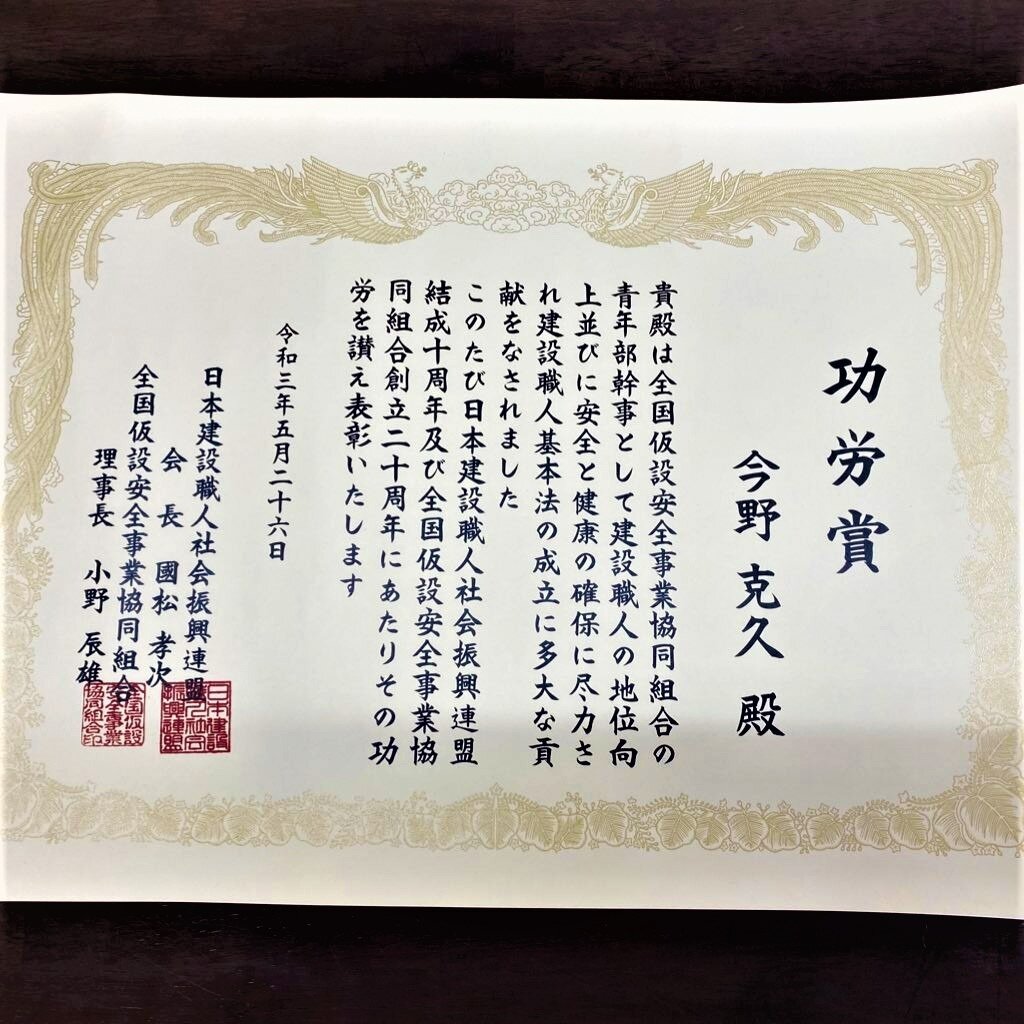 功労賞
今野 克久 殿
貴殿は全国仮設安全事業協同組合の
青年部幹事として建設職人の地位向
上並びに安全と健康の確保に尽力さ
れ建設職人基本法の成立に多大な貢
献をなされました
このたび日本建設職人社会振興連盟
結成十周年及び全国仮設安全事業協
同組合創立二十周年にあたりその功
労を讃え表彰いたします
令和三年五月二十六日
日本建設職人社会振興連盟
会長 國松 孝次
全国仮設安全事業協同組合
理事長 小野 辰雄
日本建設
職人社会
振興連盟
全国仮設
安全事業
協同組合印